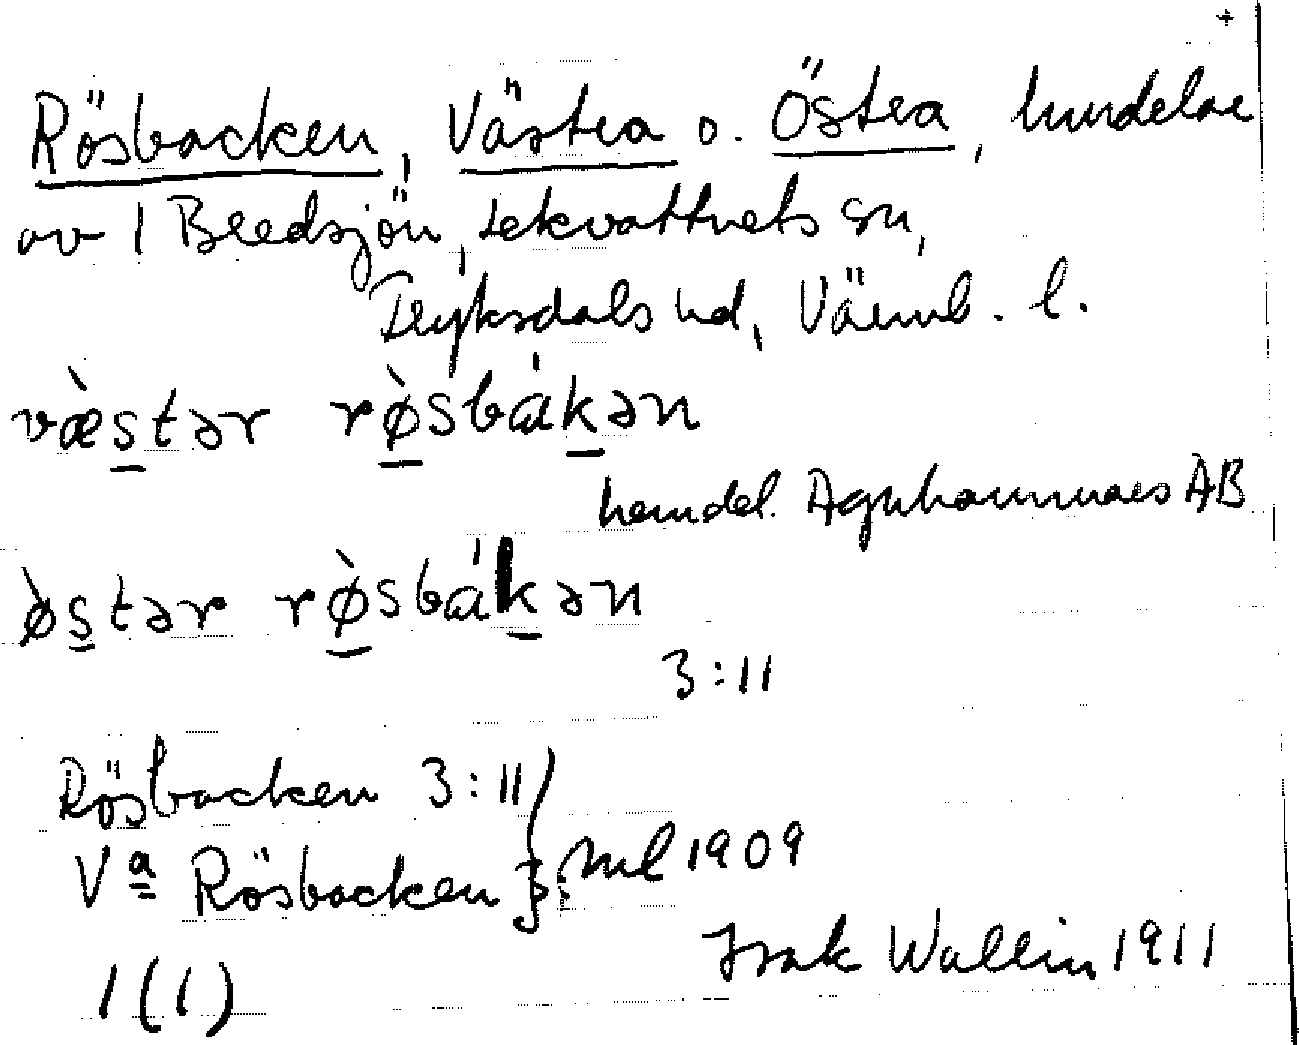 +
Rösbacken, Västra o. Östra, hmdelar
av 1 Bredsjön, Lekvattnets sn,
Fryksdals hd, Värml. l.
væ̀stər rø̀sbákən
hemdel. Agnhammars AB
ø̀stər rø̀sbákən
3:11
Rösbacken 3:11
Va Rösbacken
Jnl 1909
Isak Wallin 1911
1(1)